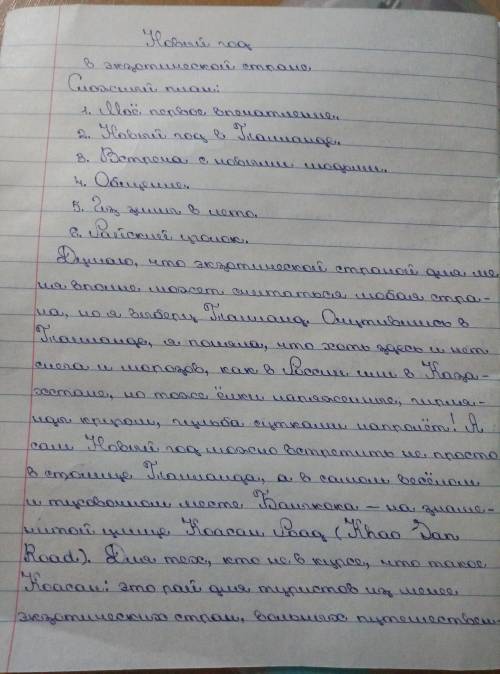 Новый год
в экзотической стране
Сложный план:
1. Моё первое впечатление.
2. Новый год в Таиланде.
3. Встреча с новыми людьми.
4. Общение.
5. Из зимы в лето.
6. Райский уголок.
Думаю, что экзотической страной для ме-
ня вполне может считаться любая стра-
на, но я выберу Таиланд. Очутившись в
Таиланде, я поняла, что хоть здесь и нет
снега и морозов, как в России или в Каза-
хстане, но тоже ёлки наряженные, гирлян-
нды кругом, гульба сутками напролёт! А
сам Новый год можно встретить не просто
в столице Таиланда, а в самом весёлом
и тусовочном месте Бангкока – на знаме-
нитой улице Коасан Роад (Khao San
Road). Для тех, кто не в курсе, что такое
Коасан: это рай для туристов из менее
экзотических стран, вольных путешествен-